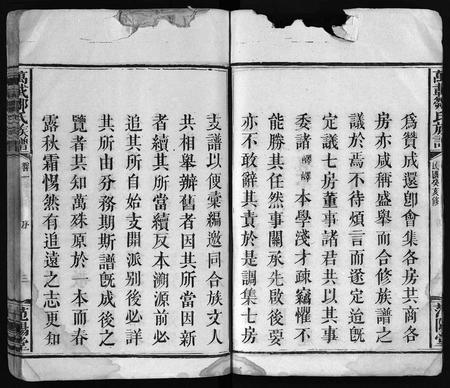 萬載鄒氏族譜
民國癸亥修
范陽堂
爲贊成還卽會集各房共商各
房亦咸稱盛舉而合修族譜之
議於焉不待煩言而遂定迨旣
定議七房董事諸君共以其事
委諸㘛㘛本學淺才疎竊懼不
勝其任然事關承先啟後要
亦不敢辭其責於是調集七房
支譜以便彙編邀同合族文人
共相舉辦舊者因其所當因新
者續其所當續反本溯源前必
追其所自始支開派別後必詳
其所由分務期斯譜旣成後之
覽者共知萬殊原於一本而春
露秋霜惕然有追遠之志更知
萬載鄒氏族譜
卷一
序
三
范陽堂